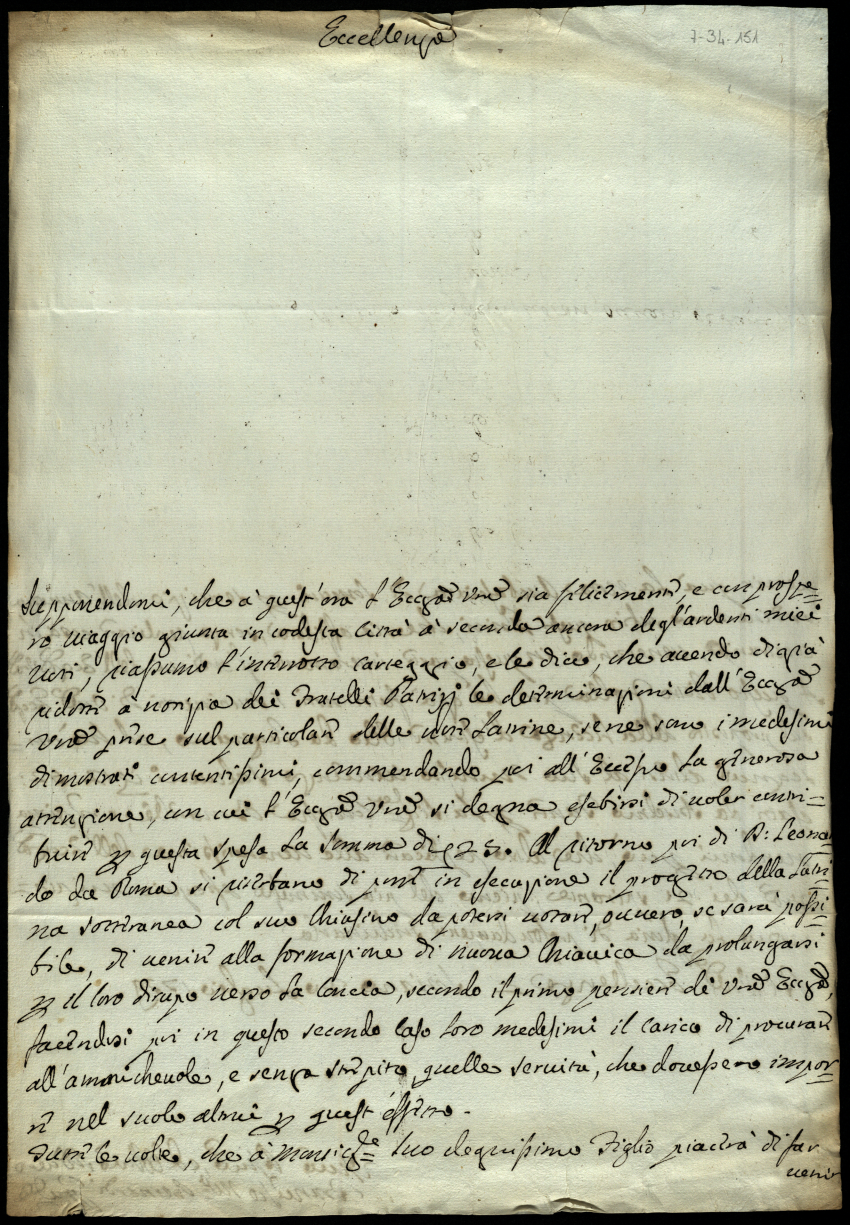 Eccellenza
7-34-151
Supponendomi, che à quest'ora l'Ecczã Vrã sia felicemente, e con prospe=
ro viaggio giunta in codesta Città à seconda ancora degl'ardenti miei
voti, riassumo l'intermesso carteggio, e le dico, che avendo di già
ridotte à notizia dei Fratelli Patrizj le determinazioni dall'Ecczã
Vrã prese sul particolare delle note Latrine, se ne sono i medesimi
dimostrati contentissimi, commendando poi all'Eccesso la generosa
attenzione, con cui l'Ecczã Vrã si degna esebirsi di voler contri=
buire per questa spesa la somma di 25. Al ritorno poi di D: Leonar
do da Roma si riserbano di porre in esecuzione il progetto della Latri=
na sotterranea col suo Chiusino da potersi votare, ovvero, se sarà possi=
bile, di venire alla formazione di nuova Chiavica da prolungarsi
per il loro dirupo verso la Concia, secondo il primo pensiere di Vrã Ecczã,
facendosi poi in questo secondo Caso loro medesimi il Carico di procurare
all'amichevole, e senza strepito quelle servitù, che dovessero impor=
re nel suolo altrui per quest'effetto.
Tutte le volte, che à Monsieur suo degnissimo Figlio piacerà di far
venir